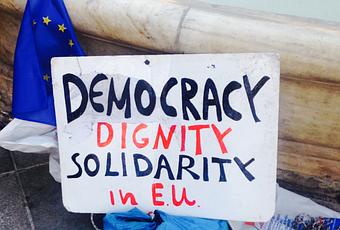 DEMOCRACY
DIGNITY
SOLIDARITY
in E.U.